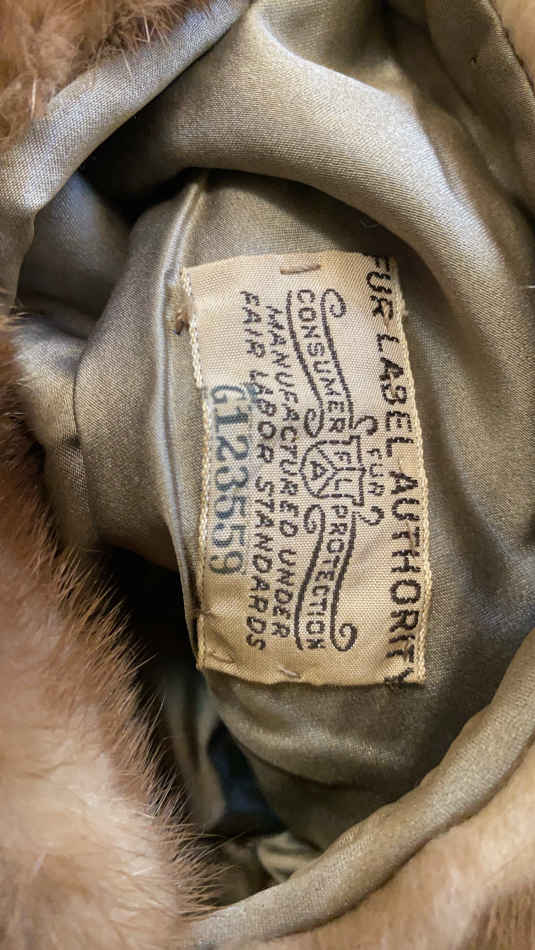 FUR LABEL AUTHORITY
FUR
CONSUMER PROTECTION
FLA
MANUFACTURED UNDER
FAIR LABOR STANDARDS
G123559